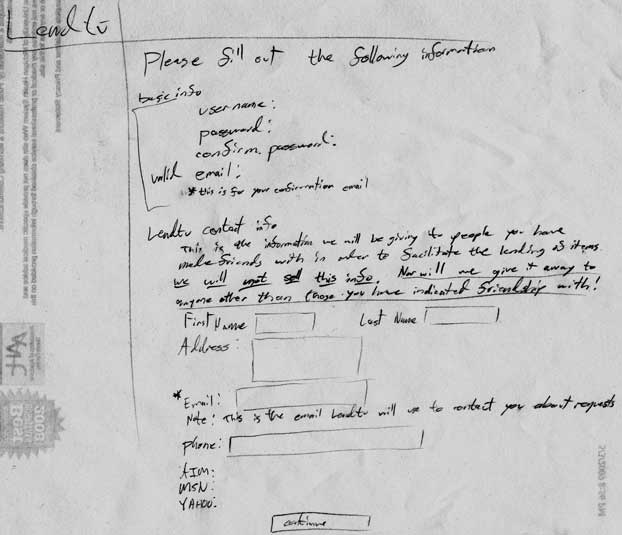 Lendtv
Please fill out the following information
basic info
username:
password:
confirm password:
valid email:
*this is for your confirmation email
Lendtv contact info
This is the information we will be giving to people you have
made friends with in order to facilitate the lending of items.
we will not sell this info. Nor will we give it away to
anyone other than those you have indicated friendship with!
First Name Last Name
Address:
*Email:
Note: This is the email Lendtv will use to contact you about requests
phone:
AIM:
MSN:
YAHOO:
continue